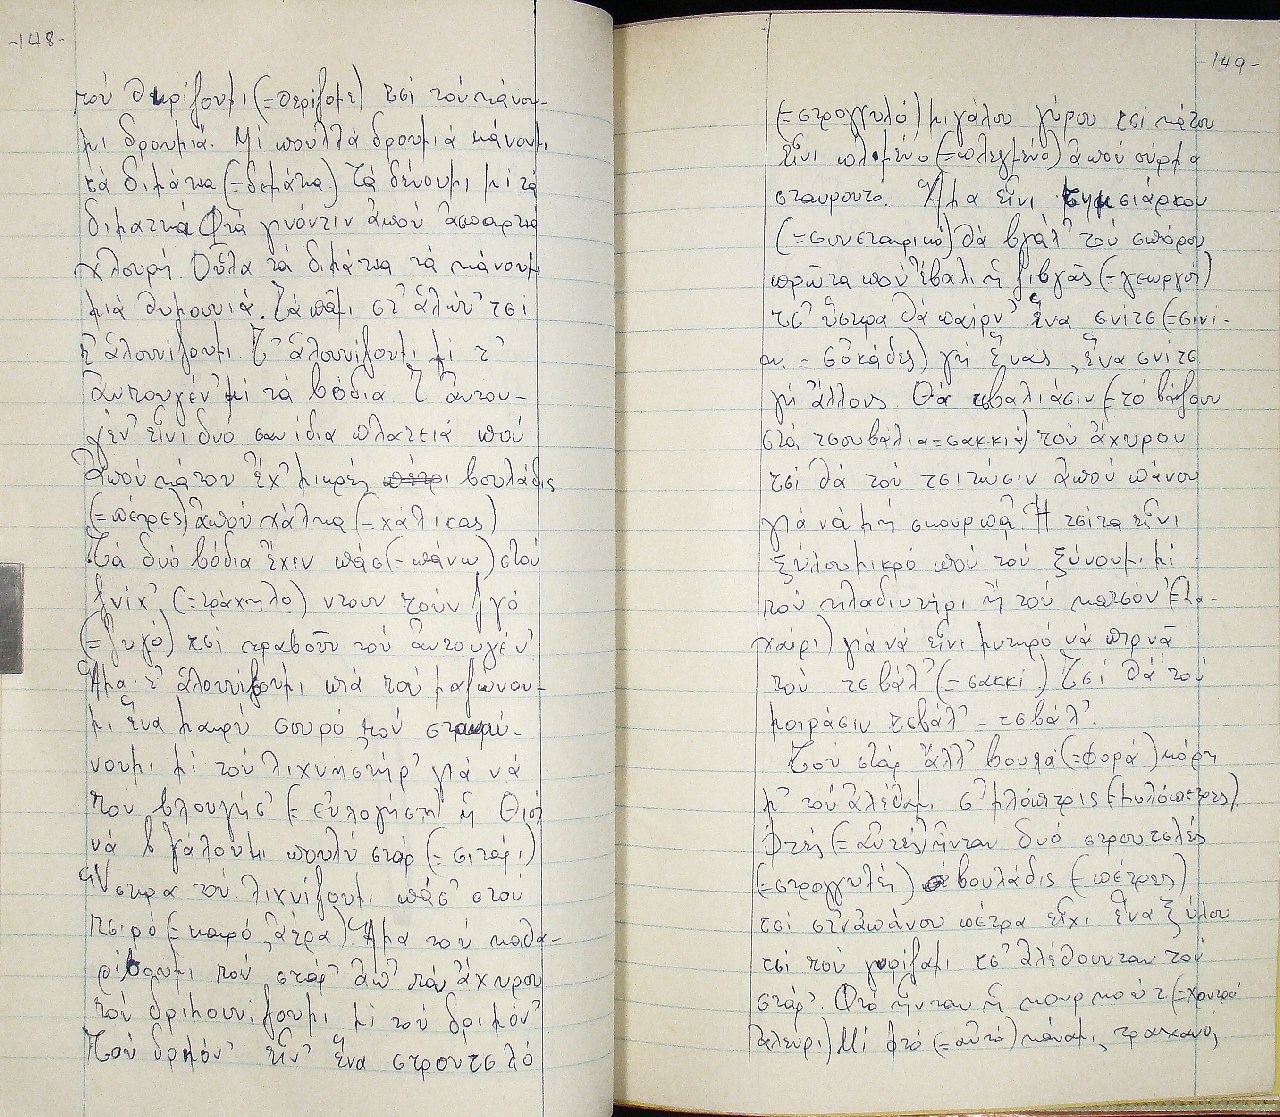 -148-
τού θιρίζουμι (=θερίζομε) τσί τού κάνου-
μι δρουμιά. Μί πουλλά δρουμιά κάνουμι
τά διμάτια (=δεμάτια) Τά δένουμι μί τά
διματκά Φτά γινόντιν ἀπού ἀσπαρτιά
χλουρή Οὗλα τά διμάτια τά κάνουμ
μιά θυμουνιά. Τά πᾶμι στ' ἁλών' τσί
τ' ἁλουνίζουμι. Τ' ἁλουνίζουμι μί τ'
ἀντουγέν' μί τά βόδια. Τ' ἀντου-
γέν' εἶνι δυό σανίδια πλατειά πού
ἀπού κάτου ἔχ' μικρές βουλάδις
(=πέτρες) ἀπού χάλκα (=χάλικας)
Τά δυό βόδια ἔχεν πάς (=πάνω) στού
ζνίχ' (=τράχηλο) ντουν τούν ζγό
(=ζυγό) τσί τραβοῦν τού ἀντουγέν'.
Ἅμα τ' ἁλουνίζουμι πιά τού μαζώνου-
μι ἕνα μακρύ σουρό τού σταυρώ-
νουμι μί τού λιχνηστήρ' γιά νά
τού βλουγήσ' (=εὐλογήση) ἡ Θιός
νά βγάλουμι πουλύ στάρ (=σιτάρι)
Ὕστρα τού λιχνίζουμι πάς' στού
τσιρό (=καιρό, ἀέρα). Ἅμα τού καθα-
ρίσουμι τού στάρ' ἀπ' τόν ἄχυρου
τού δριμουνίζουμι μί τού δριμόν'
Τού δρμόν' εἶν' ἕνα στρουτσλό
-149-
(=στρογγυλό) μιγάλου γύρου τσί κάτου
εἶνι πλιμένο (=πλεγμένο) ἀπού σύρμα
σταυρουτό. Ἅμα εἶνι σιάρκου
(=συνεταιρικό) θά βγάλ' τού σπόρου
πρῶτα πού ἔβαλι ἡ ζιβγᾶς (=γεωργός)
τσ' ὕστρα θά παίρν' ἕνα σνίτσ (=σινί-
κι = 8 ὀκάδες) γή ἕνας, ἕνα σνίτσ
γή ἄλλους. Θά τσβαλιάσιν (=τό βάζουν
στά τσουβάλια=σακκιά) τού ἄχυρου
τσί θά τού τσιτώσιν ἀπού πάνου
γιά νά μή σκουρπᾶ. Ἡ τσίτα εἶνι
ξύλου μικρό πού τού ξύνουμι μί
τού κλαδιυτήρι ἤ τού κατσόν' (=μα-
χαίρι) γιά νά εἶνι μυτιρό νά πιρνᾶ
τού τσβάλ' (=σακκί) Τσί θά τού
μοιράσιν τσβάλ' - τσβάλ'.
Τού στάρ' ἄλλ' βουλά (=φορά) κόρη
μ' τού ἀλέθαμι σ' μλόπιτρις (=μυλόπετρες)
Φτές (=αὐτές) ἦνταν δυό στρουτσλές
(=στρογγυλές) βουλάδις (=πέτρες)
τσί στν ἀπάνου πέτρα εἶχι ἕνα ξύλου
τσί τού γυρίζαμι τσ' ἀλέθουνταν τού
στάρ'. Φτό ἦνταν ἡ κουρκούτ (=χοντρό
ἀλεύρι) Μί φτό (=αὐτό) κάναμι, τραχανό,